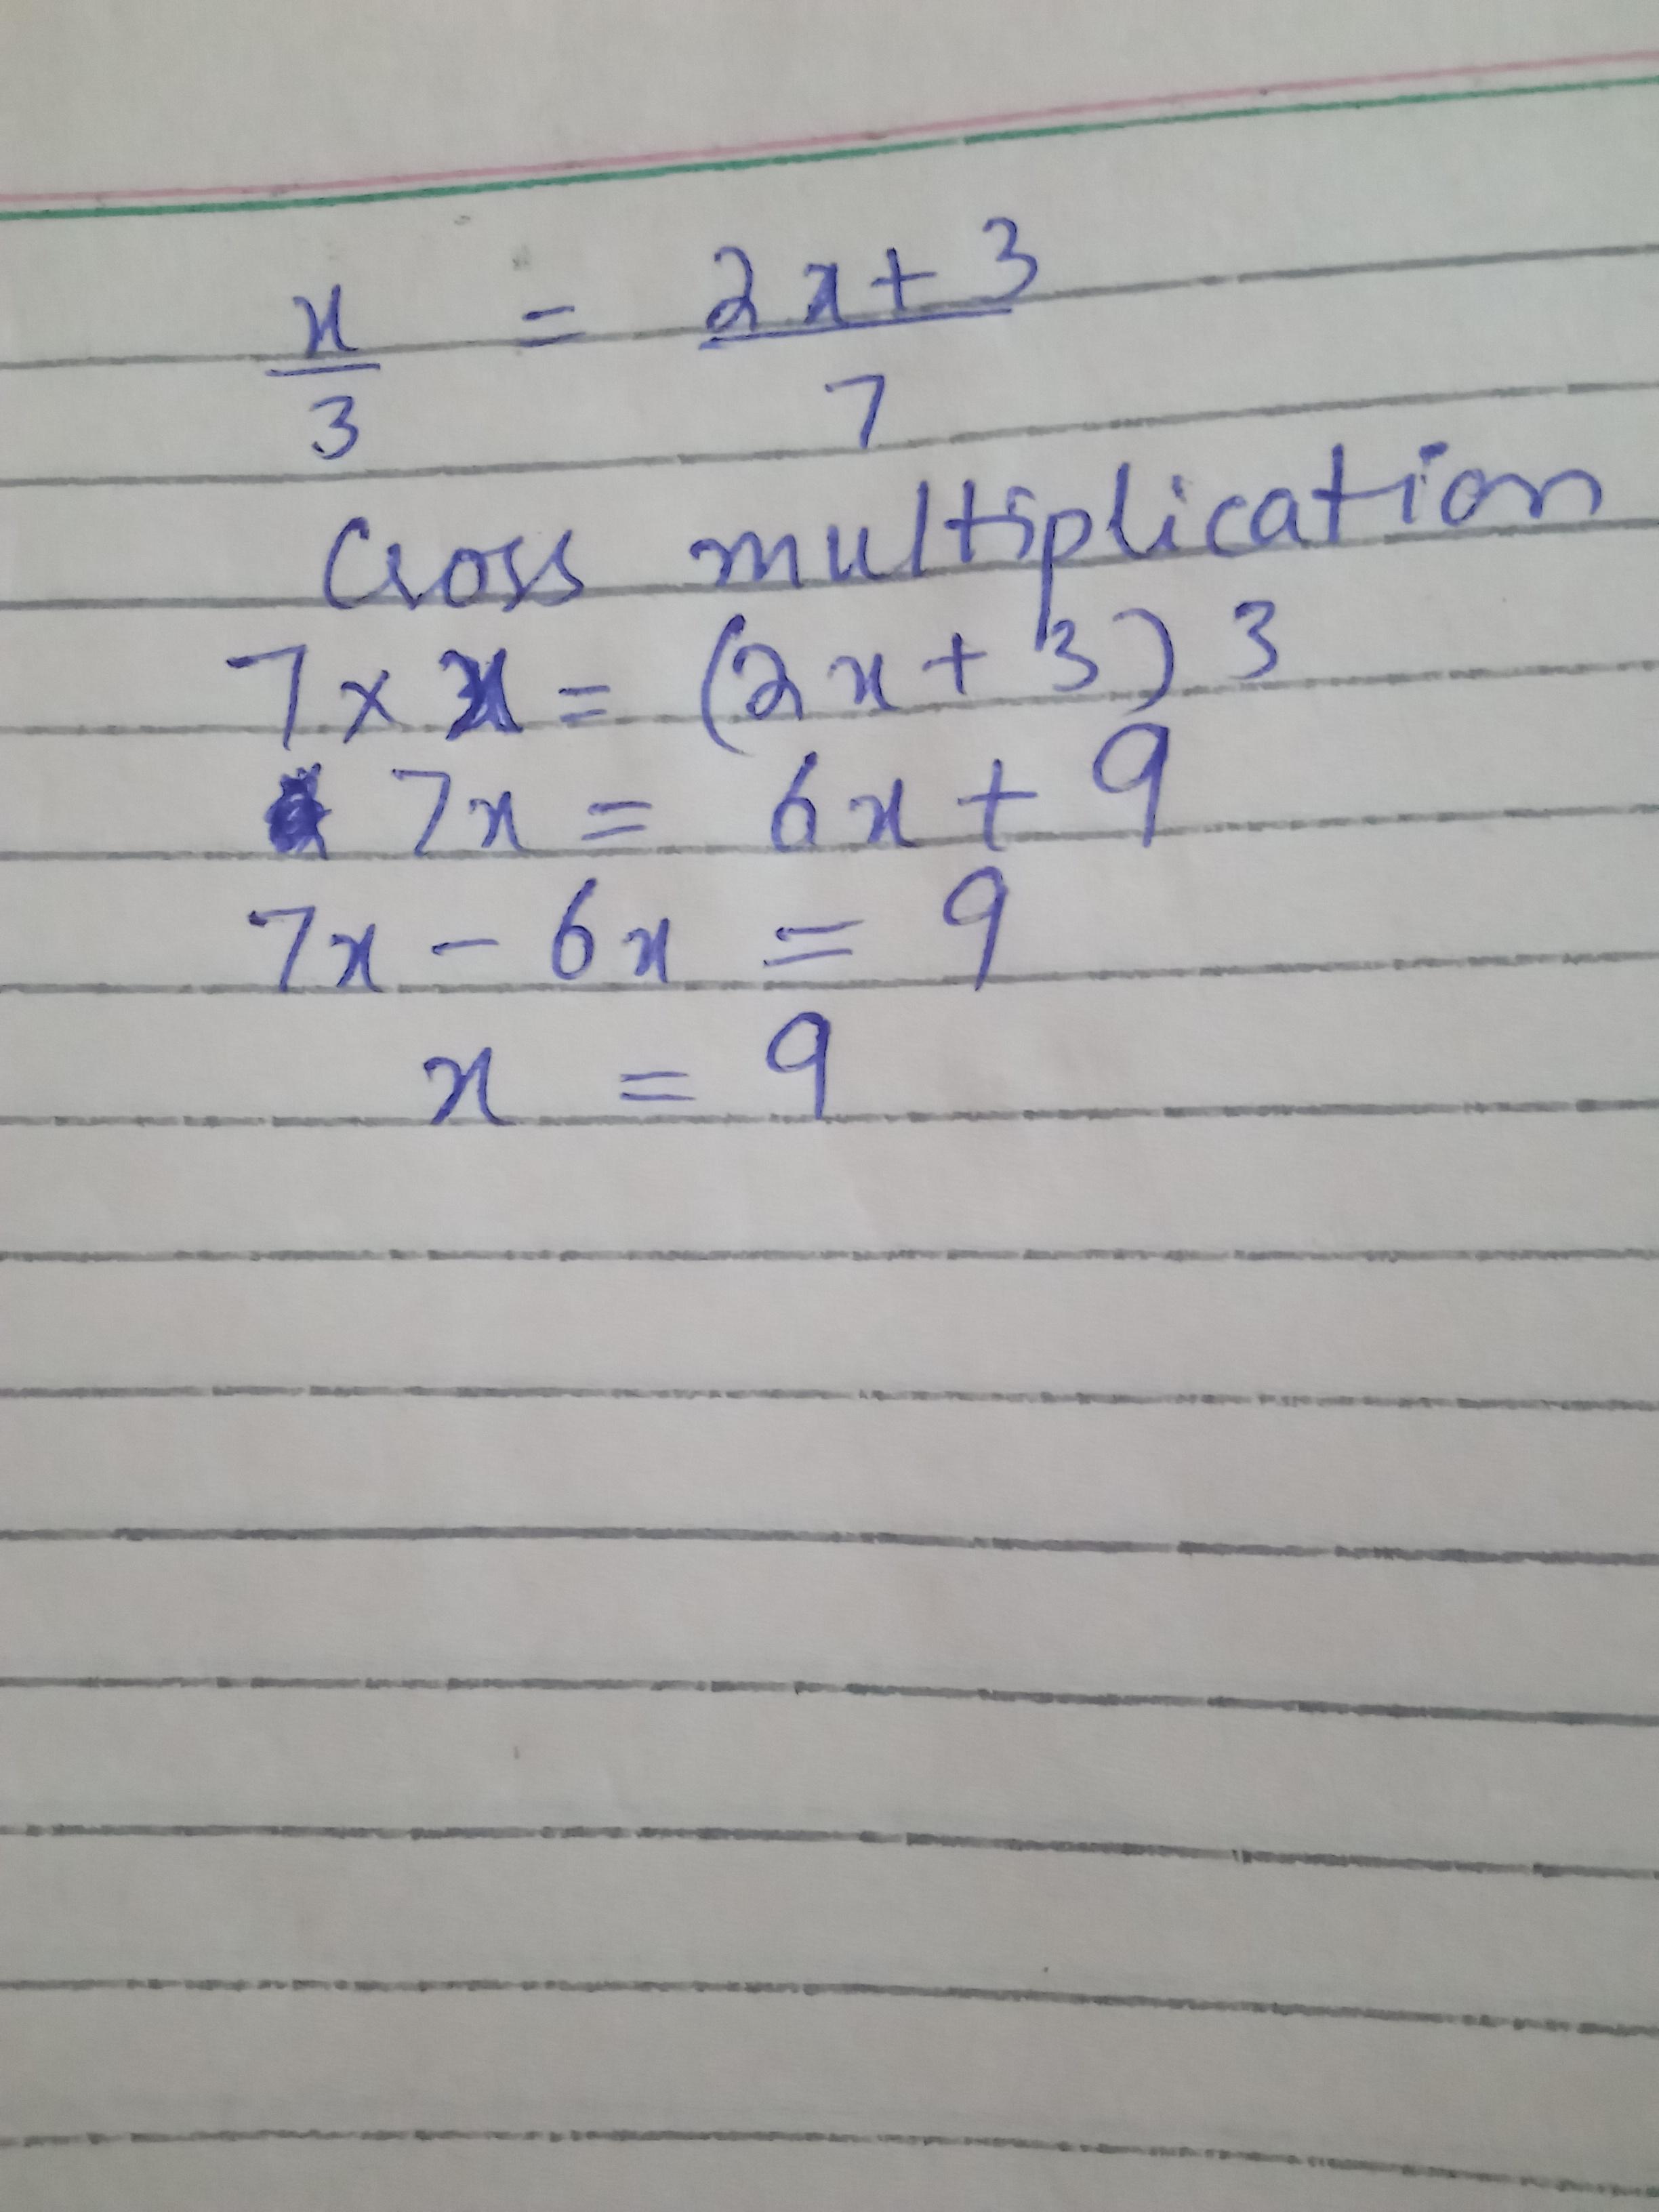 x/3 = 2x+3/7
Cross multiplication
7 × x = (2x + 3) 3
7x = 6x + 9
7x - 6x = 9
x = 9